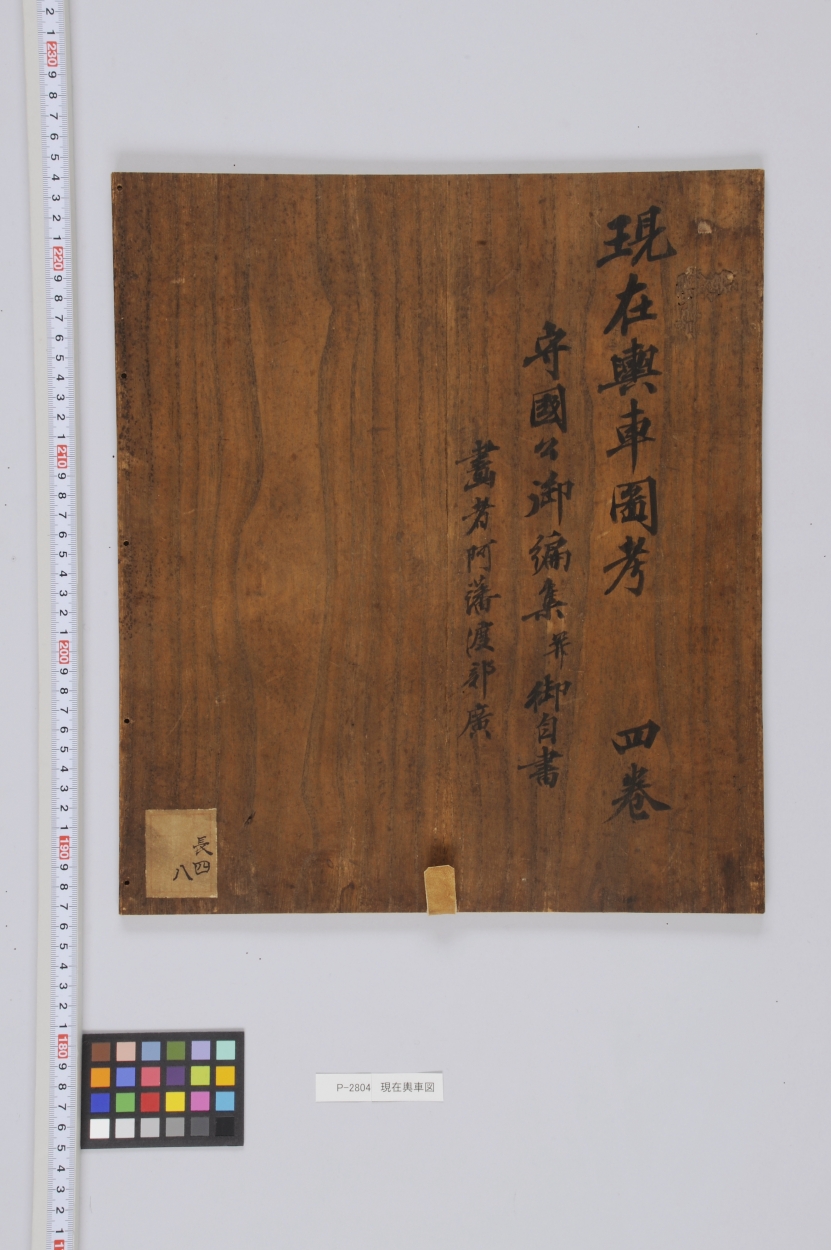 現在輿車圖考 四巻
守國公御編集并御自書
畫者阿藩渡邉廣
長四
八
P-2804 現在輿車図
2
1
230
9
8
7
6
5
4
3
2
1
220
9
8
7
6
5
4
3
2
1
210
9
8
7
6
5
4
3
2
1
200
9
8
7
6
5
4
3
2
1
190
9
8
7
6
5
4
3
2
1
180
9
8
7
6
5
4
3
2
1